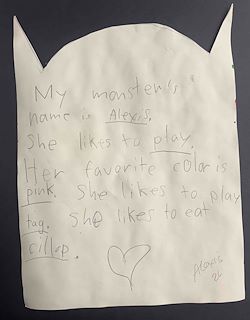 My monster's
name is Alexis.
She likes to play.
Her favorite color is
pink. She likes to play
tag. She likes to eat